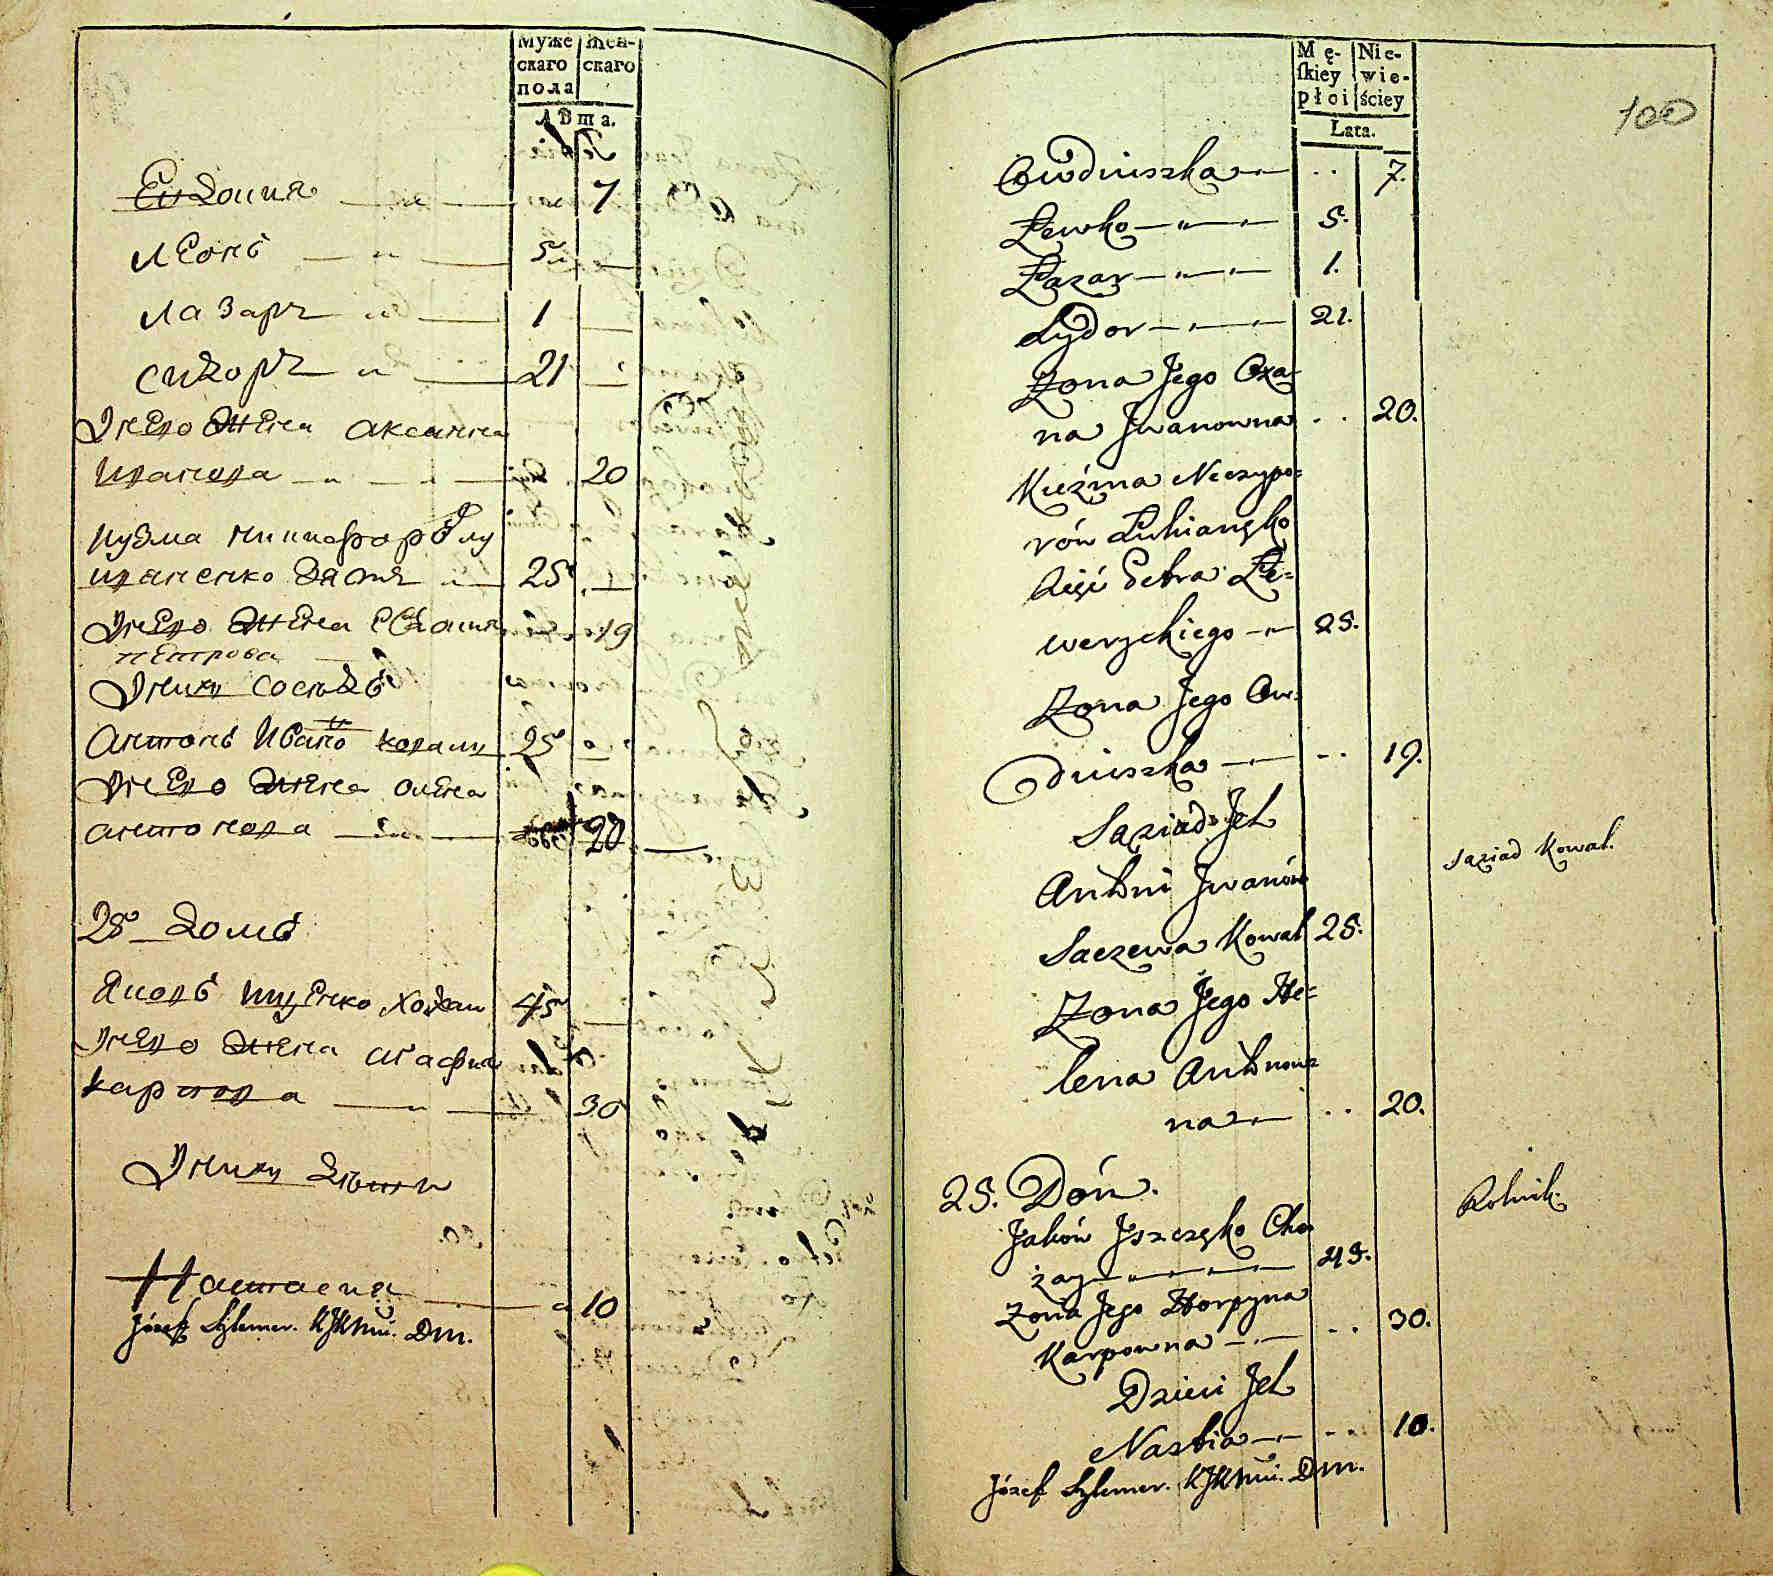 Муже
скаго
пола
Жен-
скаго
Лѣта.
Евдокия 7
Леонъ 5
Лазаръ 1
Сидоръ 21
У него жена Аксинья
Иванова 20
Кузма Никифоровъ Лу
кяненко зять 25
У него жена Евдокия 19
Петрова
У нихъ соседъ
Антонъ Ивановъ коваль 25
У него жена Олена
Антонова 20
25 Домъ
Яковъ Ищенко Хожай 45
У него жена Агафия
Карпова 30
У нихъ дети
Настасия 10
Józef Szlemer. KJKMci. Dm.
Mę-
skiey
płci
Nie-
wie-
ściey
Lata.
100
Owdiuszka 7.
Lewko 5.
Łazar 1.
Sydor 21.
Zona Jego Oxa-
na Jwanowna 20.
Kuźma Nieczypo=
rów Łukianęko
Zięć Petra Łe=
werzckiego 25.
Zona Jego Ow-
diuszka 19.
Sąziad Jch
Sąziad Kowal.
Antoni Jwanów
Saczewa Kowal 25.
Zona Jego He=
lena Antonow=
na 20.
25. Dóm.
Rolnik.
Jaków Jszczęko Cho
żay 45.
Zona Jego Horpyna
Karpowna 30.
Dzieci Jch
Nastia 10.
Józef Szlemer. KJKMci. Dm.